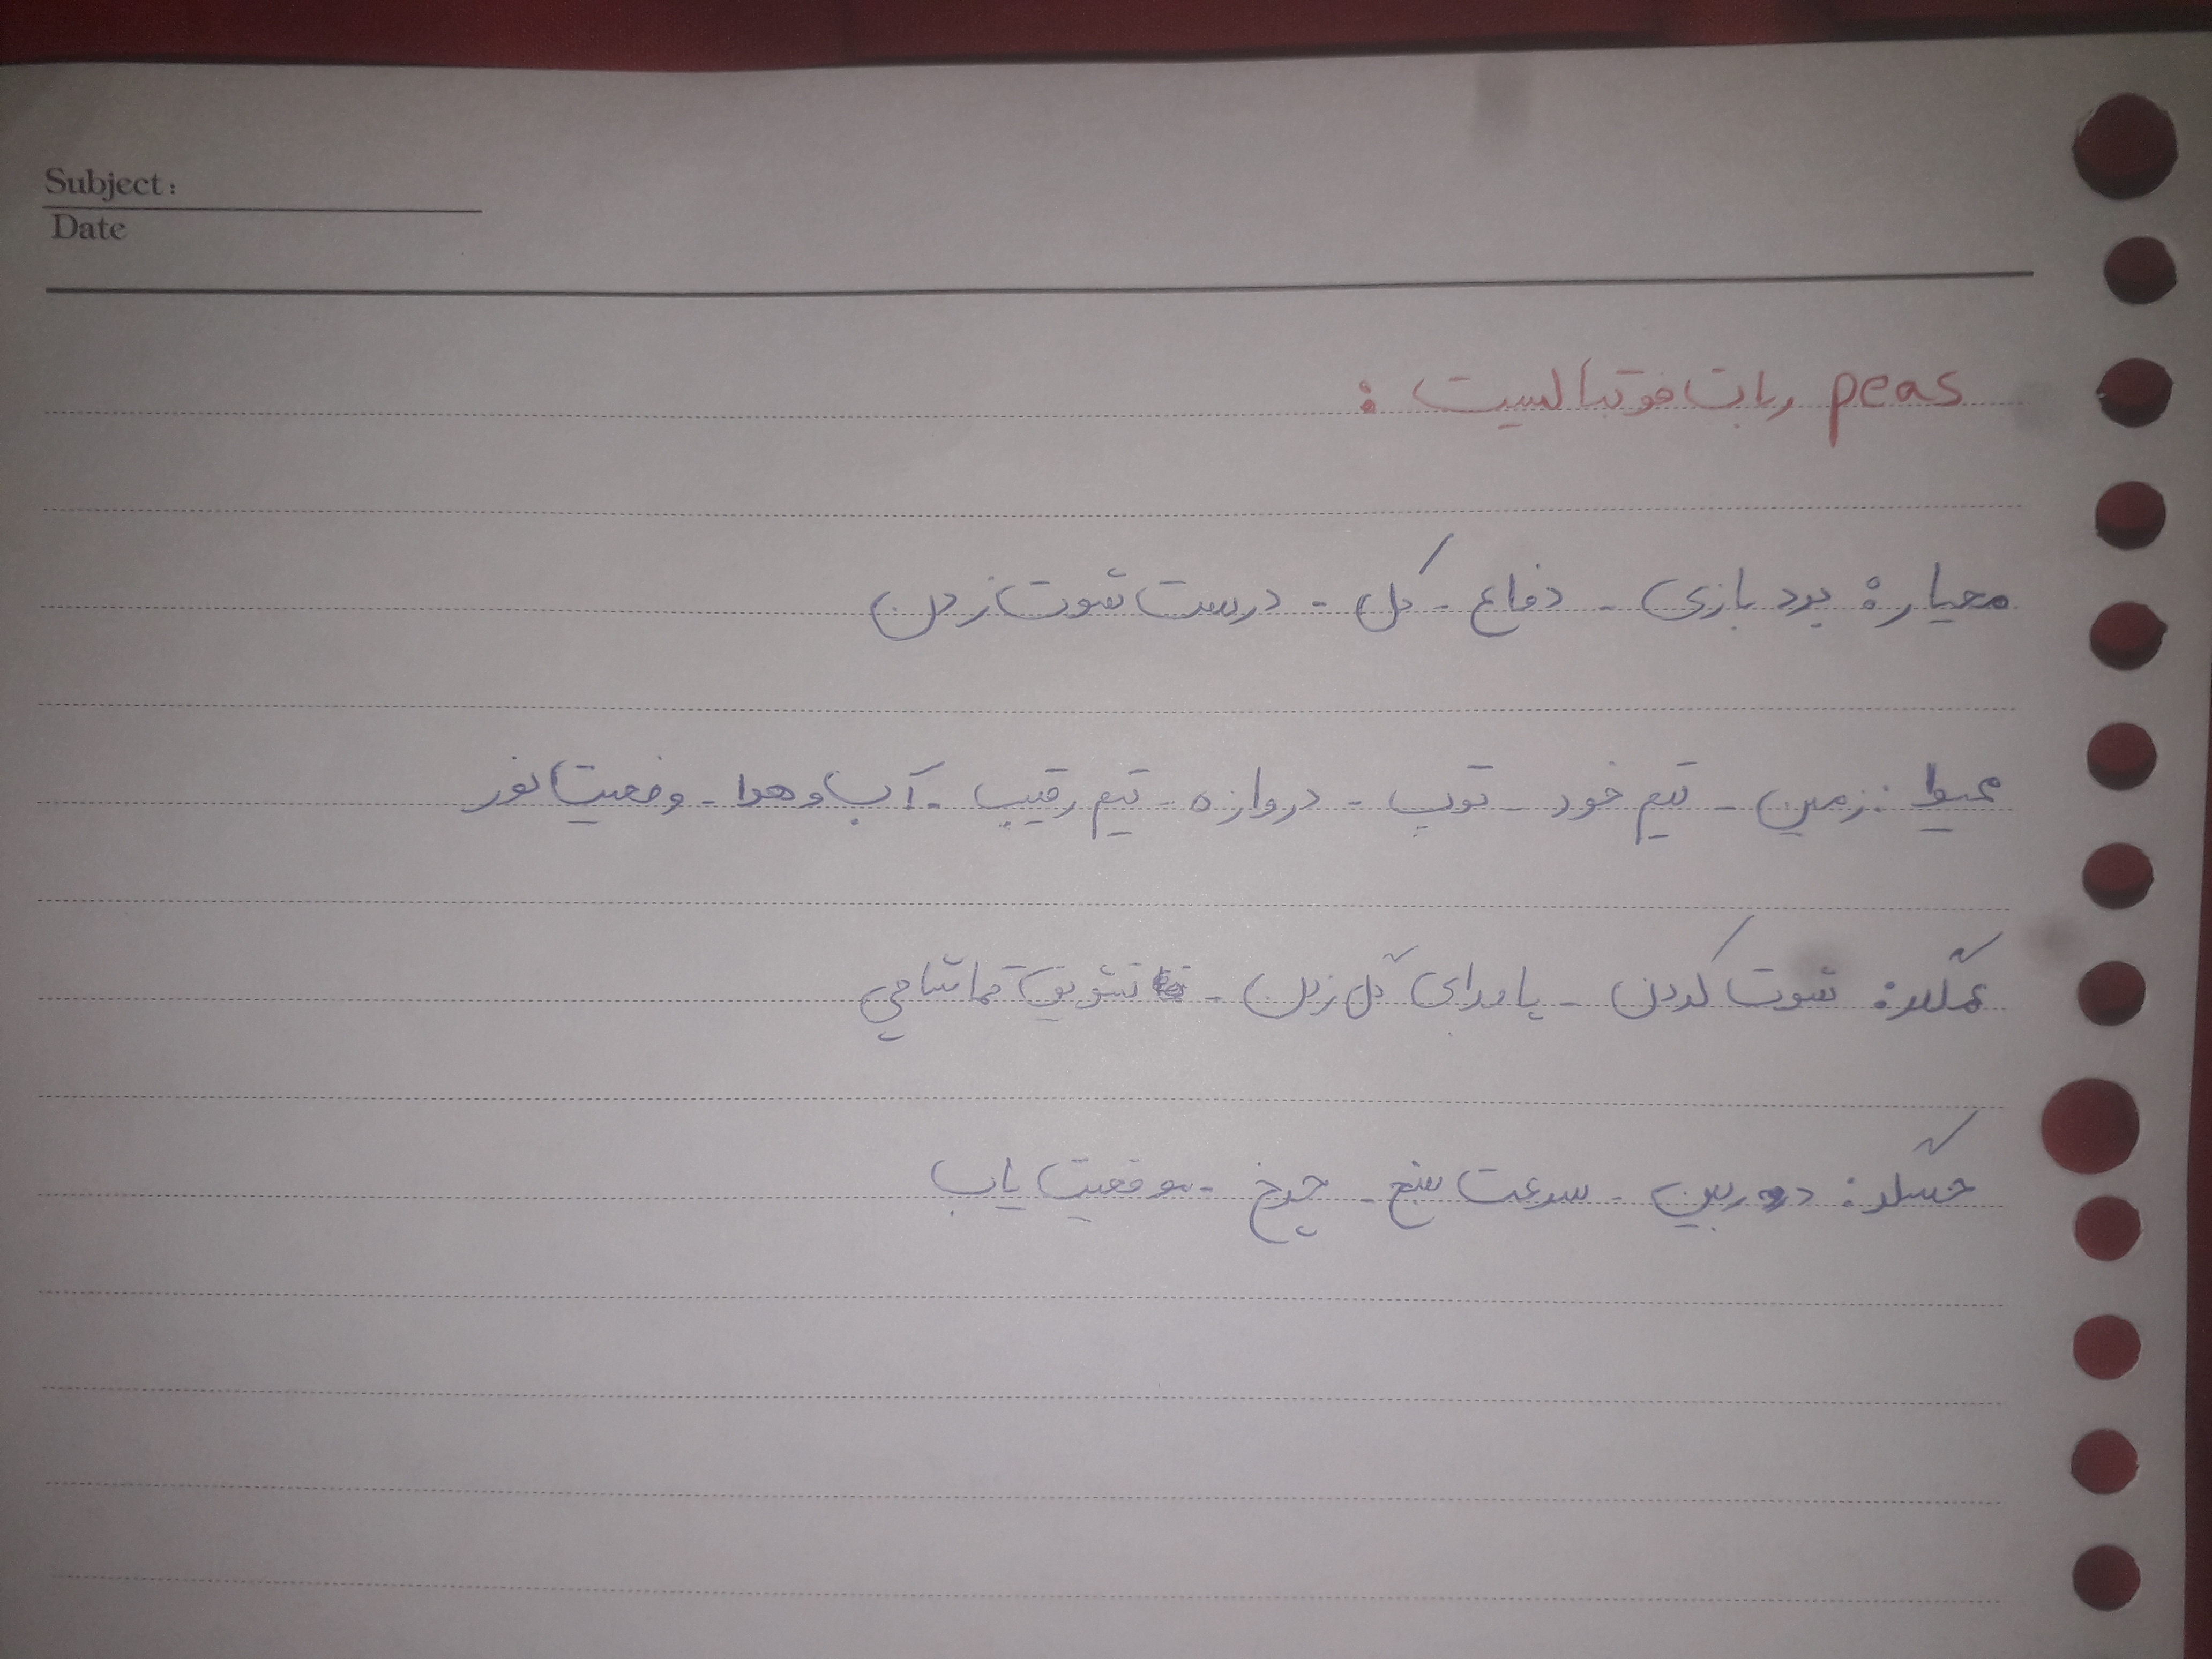 Subject:
Date
peas ربات فوتبالیست :
معیار: برد بازی - دفاع - گل - درست شوت زدن
محیط: زمین - تیم خود - توپ - دروازه - تیم رقیب - آب و هوا - وضعیت نور
عملگر: شوت کردن - پا برای گل زدن - تشویق تماشاچی
حسگر: دوربین - سرعت سنج - چرخ - موقعیت یاب